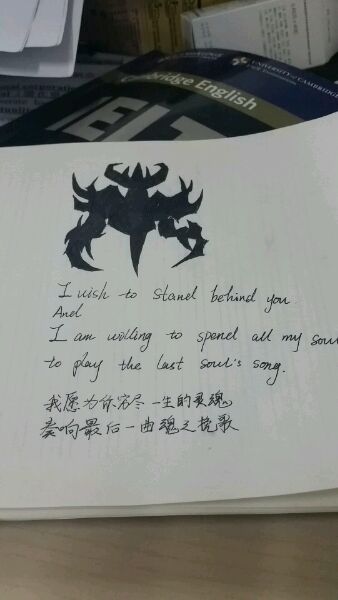 Cambridge English
UNIVERSITY of CAMBRIDGE
IELT
I wish to stand behind you
And
I am willing to spend all my soul
to play the last soul's song.
我愿为你穷尽一生的灵魂
奏响最后一曲魂之挽歌